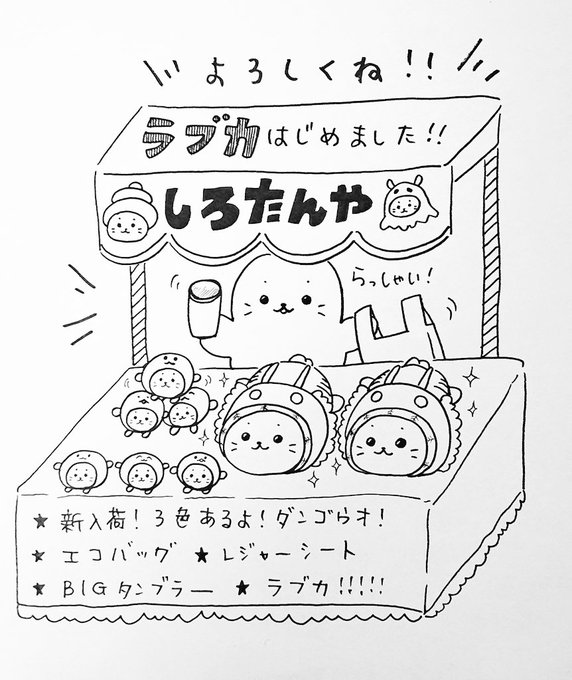 よろしくね!!
ラブカはじめました!!
しろたんや
らっしゃい!
★新入荷!3色あるよ!ダンゴウオ!
★エコバッグ ★レジャーシート
★BIGタンブラー ★ラブカ!!!!!